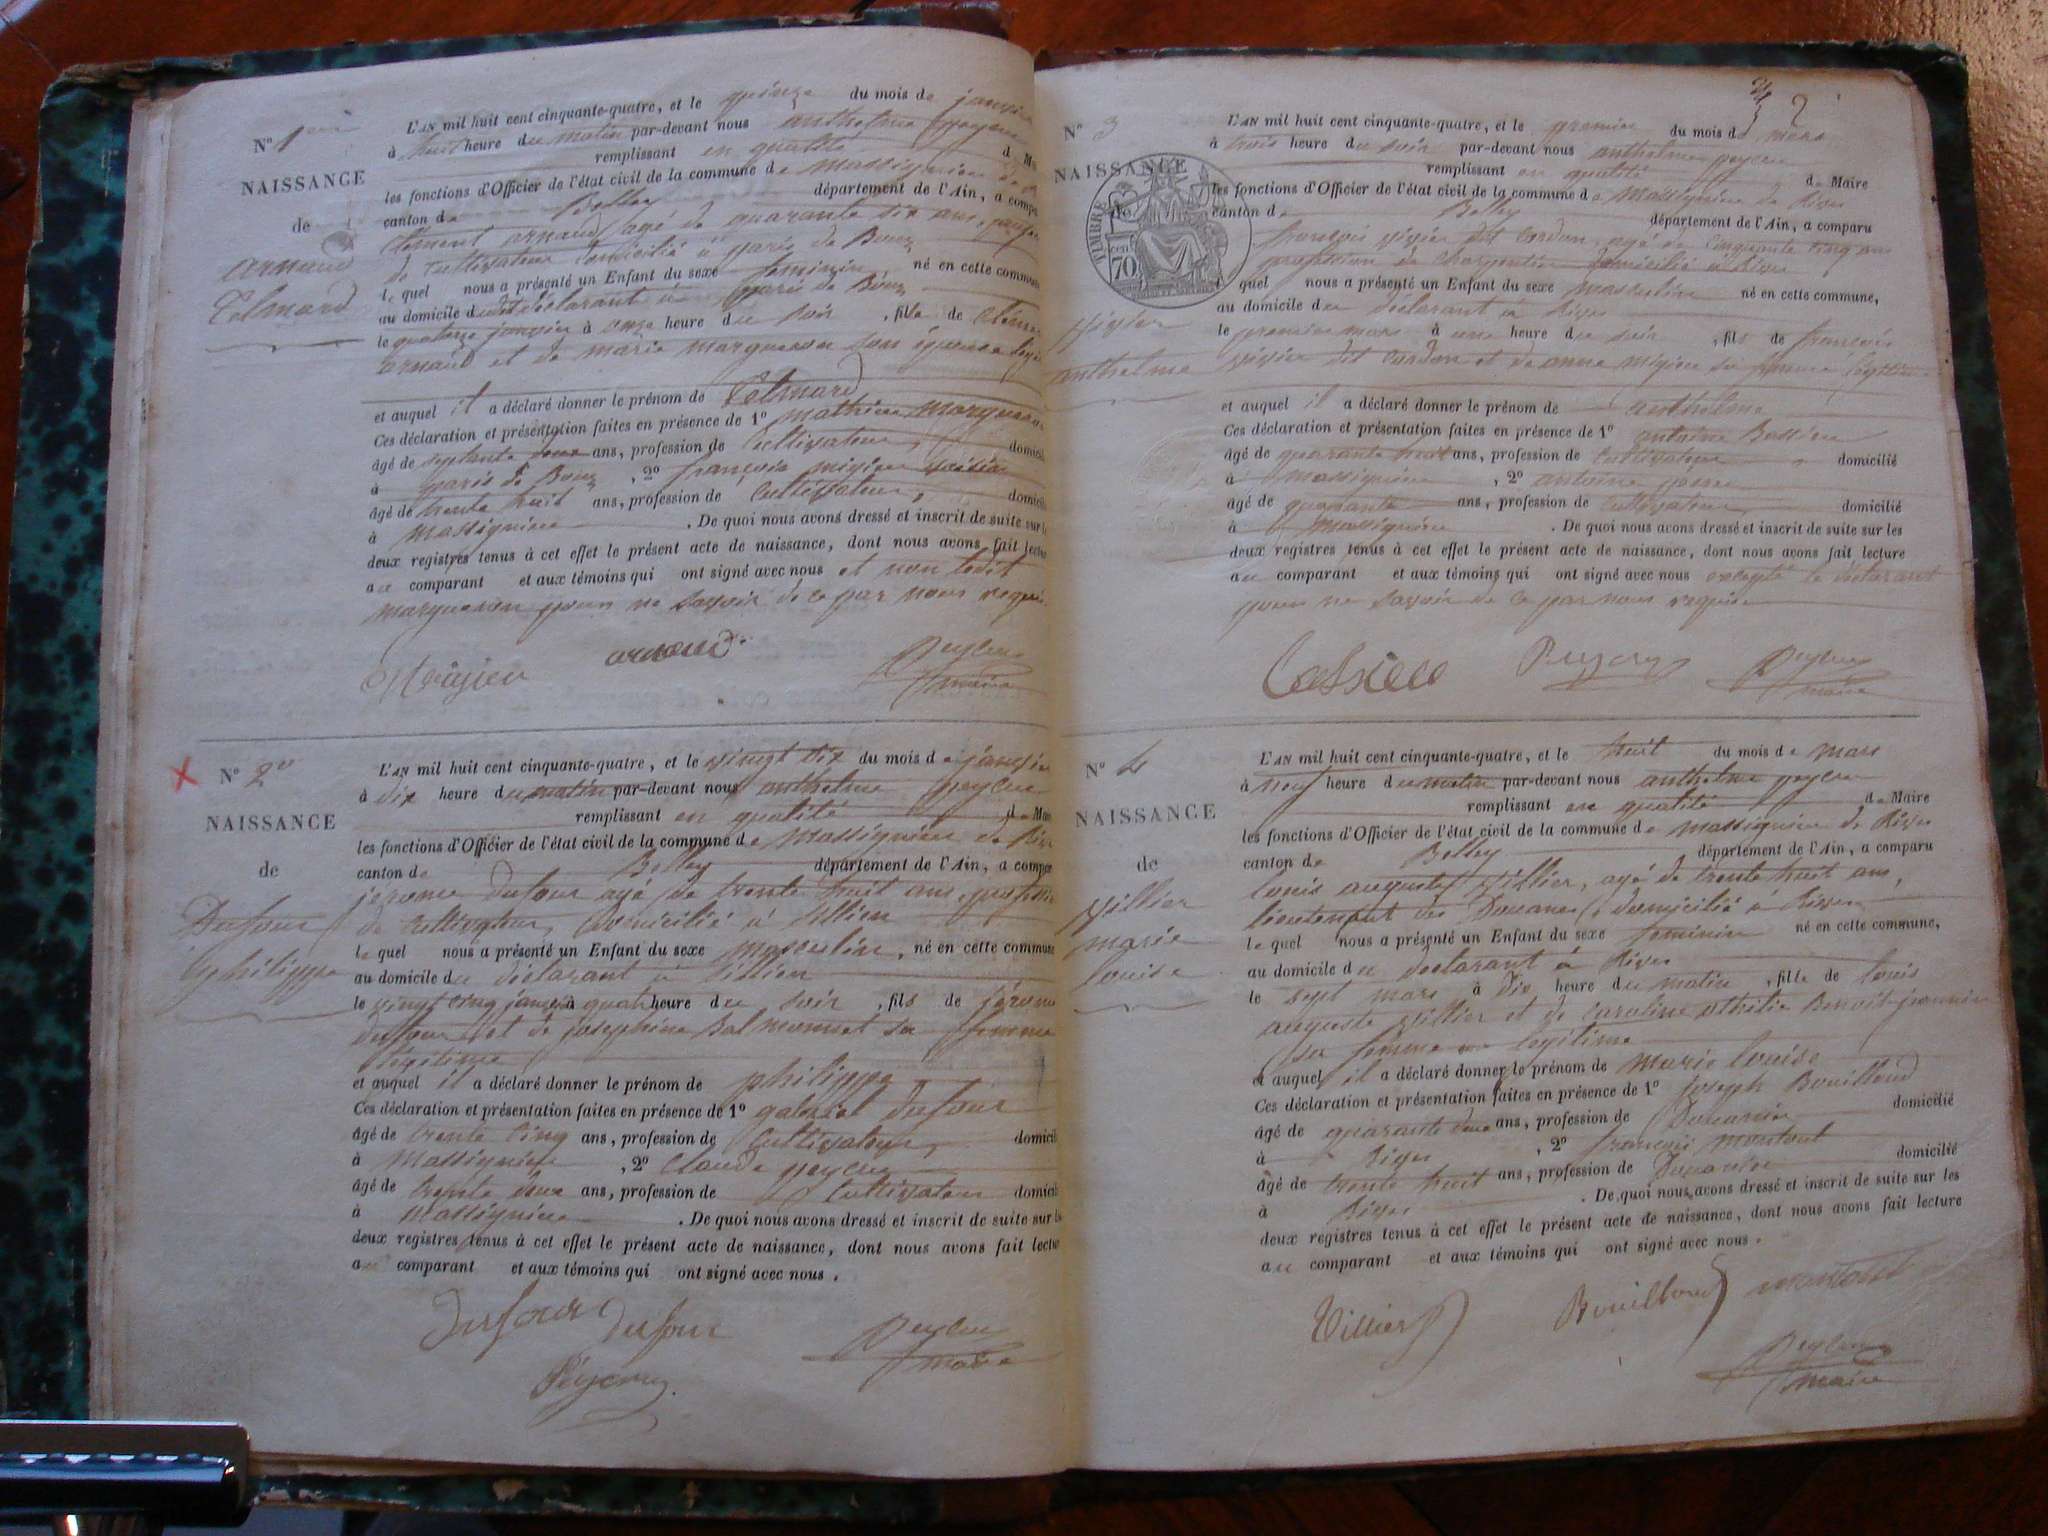 N° 1er
NAISSANCE
de
arnaud
L'AN mil huit cent cinquante-quatre, et le quinze du mois de janvier
à huit heure du matin par-devant nous anthelme peyeur
remplissant en qualité de
les fonctions d'Officier de l'état civil de la commune de massignieu de
canton de Belley département de l'Ain, a
Clément arnaud agé de quarante six ans,
de cultivateur domicilié à
lequel nous a présenté un Enfant du sexe feminin, né en cette commune
au domicile dudit déclarant à
le quatorze janvier à onze heure du soir, fille de
arnaud et de marie margueron son épouse
et auquel il a déclaré donner le prénom de
Ces déclaration et présentation faites en présence de 1° mathieu margueron
âgé de septante deux ans, profession de Cultivateur,
à , 2° françois
âgé de trente huit ans, profession de Cultivateur,
à massignieu . De quoi nous avons dressé et inscrit de suite sur
deux registres tenus à cet effet le présent acte de naissance, dont nous avons fait
au comparant et aux témoins qui ont signé avec nous et non ledit
margueron pour ne savoir de ce par nous requis
arnaud
maire
N° 2
NAISSANCE
de
Dufour
philippe
L'AN mil huit cent cinquante-quatre, et le vingt six du mois de janvier
à dix heure du matin par-devant nous anthelme
remplissant en qualité de
les fonctions d'Officier de l'état civil de la commune de massignieu de
canton de Belley département de l'Ain, a
jérome dufour agé de trente huit ans,
de cultivateur, domicilié à
lequel nous a présenté un Enfant du sexe masculin, né en cette commune
au domicile du déclarant à
le vingt cinq janvier à quatre heure du soir, fils de jérome
dufour et de josephine sa femme
légitime
et auquel il a déclaré donner le prénom de philippe
Ces déclaration et présentation faites en présence de 1° gabriel dufour
âgé de trente cinq ans, profession de Cultivateur,
à massignieu , 2° Claude
âgé de trente deux ans, profession de Cultivateur
à massignieu . De quoi nous avons dressé et inscrit de suite sur
deux registres tenus à cet effet le présent acte de naissance, dont nous avons fait
au comparant et aux témoins qui ont signé avec nous.
dufour dufour
maire
2
N° 3
NAISSANCE
de
TIMBRE
70
anthelme
L'AN mil huit cent cinquante-quatre, et le premier du mois de mars
à trois heure du soir par-devant nous anthelme
remplissant en qualité de Maire
les fonctions d'Officier de l'état civil de la commune de massignieu de Rives
canton de Belley département de l'Ain, a comparu
françois dit Cardon, agé de cinquante cinq ans
profession de charpentier domicilié à Rives
lequel nous a présenté un Enfant du sexe masculin né en cette commune,
au domicile du déclarant à Rives
le premier mars à une heure du soir, fils de françois
dit Cardon et de anne sa femme légitime
et auquel il a déclaré donner le prénom de anthelme
Ces déclaration et présentation faites en présence de 1° antoine
âgé de quarante huit ans, profession de Cultivateur domicilié
à massignieu , 2° antoine
âgé de quarante ans, profession de Cultivateur domicilié
à massignieu . De quoi nous avons dressé et inscrit de suite sur les
deux registres tenus à cet effet le présent acte de naissance, dont nous avons fait lecture
au comparant et aux témoins qui ont signé avec nous excepté le déclarant
pour ne savoir de ce par nous requis
maire
N° 4
NAISSANCE
de
Villier
marie
louise
L'AN mil huit cent cinquante-quatre, et le huit du mois de mars
à neuf heure du matin par-devant nous anthelme
remplissant en qualité de Maire
les fonctions d'Officier de l'état civil de la commune de massignieu de Rives
canton de Belley département de l'Ain, a comparu
louis auguste Villier, agé de trente huit ans,
lieutenant des Douanes, domicilié à Rives
lequel nous a présenté un Enfant du sexe feminin né en cette commune,
au domicile du déclarant à Rives
le sept mars à dix heure du matin, fille de louis
auguste Villier et de Caroline othilie Benoit-jeannin
sa femme légitime
et auquel il a déclaré donner le prénom de marie louise
Ces déclaration et présentation faites en présence de 1° joseph Bouilloud
âgé de quarante deux ans, profession de Douanier domicilié
à Rives , 2° françois montout
âgé de trente huit ans, profession de Douanier domicilié
à Rives . De quoi nous avons dressé et inscrit de suite sur les
deux registres tenus à cet effet le présent acte de naissance, dont nous avons fait lecture
au comparant et aux témoins qui ont signé avec nous.
Villier Bouilloud montout
maire